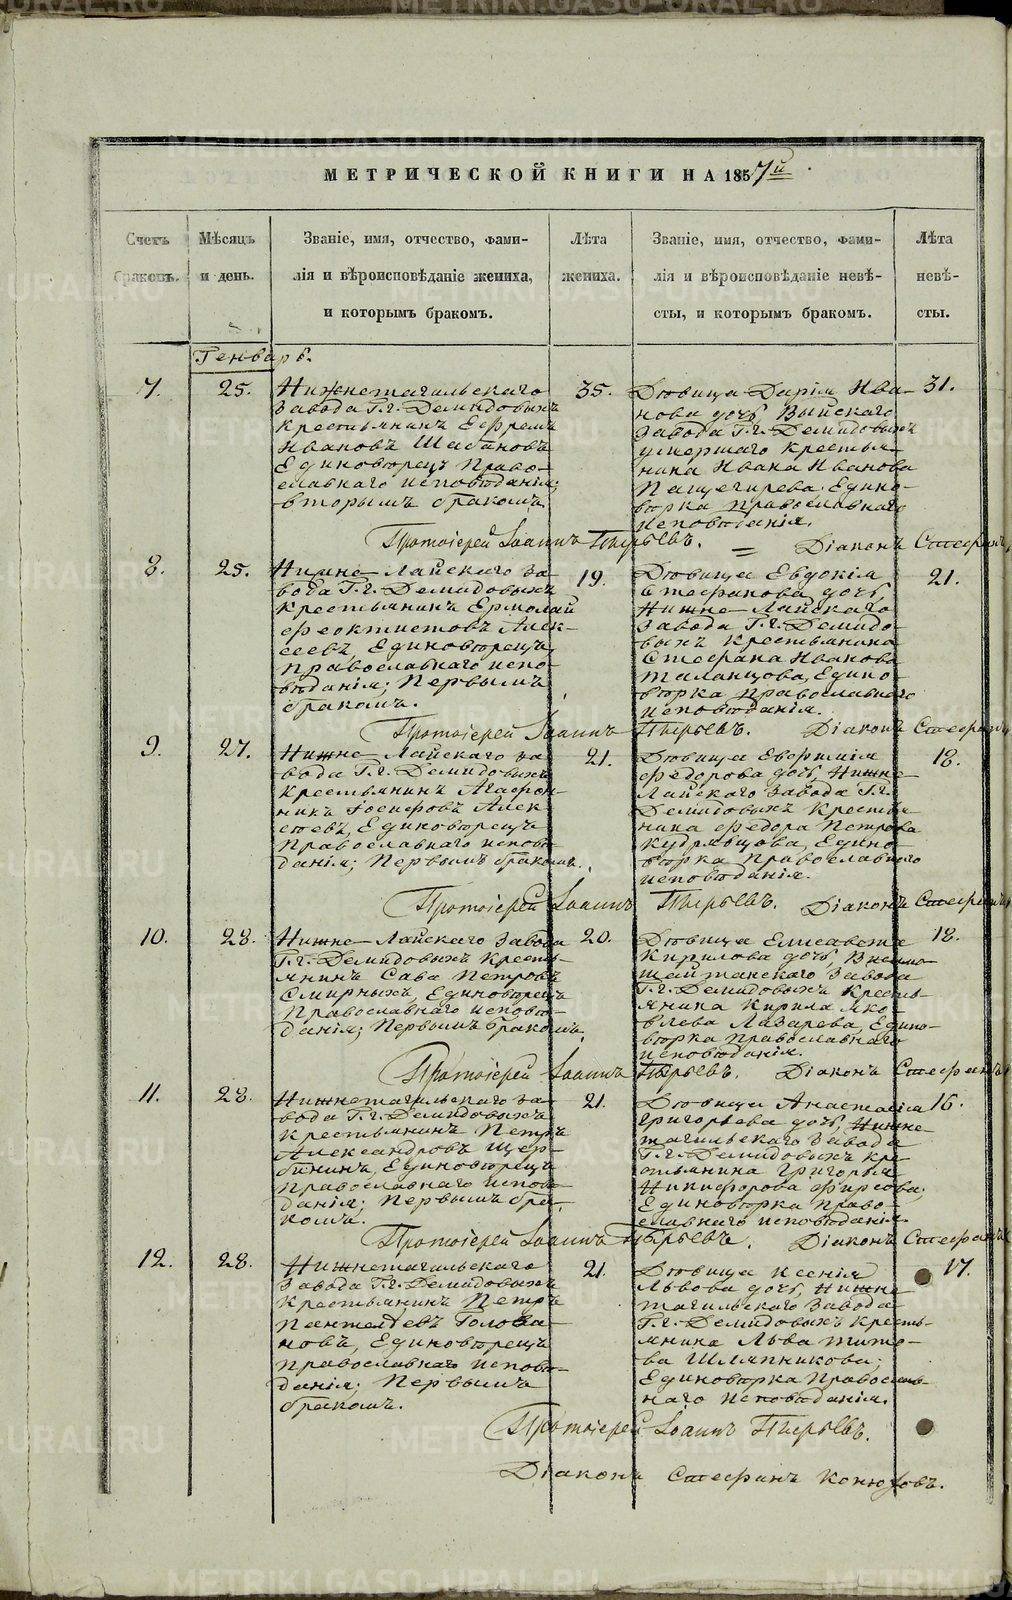 МЕТРИЧЕСКОЙ КНИГИ НА 1857й
Счетъ
браковъ.
Мѣсяцъ
и день.
Званіе, имя, отчество, фами-
лія и вѣроисповѣданіе жениха,
и которымъ бракомъ.
Лѣта
жениха.
Званіе, имя, отчество, фами-
лія и вѣроисповѣданіе невѣ-
сты, и которымъ бракомъ.
Лѣта
невѣ-
сты.
Генварь.
7.
25.
Нижнетагильскаго
Завода Г.г. Демидовыхъ
крестьянинъ Ефремъ
Ивановъ Шабановъ
Единовѣрецъ Право-
славнаго исповѣданія;
вторымъ бракомъ.
35.
Дѣвица Дарія Ива-
нова дочь, Выйскаго
Завода Г.г. Демидовыхъ
умершаго крестья-
нина Ивана Иванова
Пащегирева Едино-
вѣрка Православнаго
исповѣданія.
31.
Протоіерей Іоаннъ Пырьевъ. = Діаконъ Стефанъ
8.
25.
Нижне-Лайскаго за-
вода Г.г. Демидовыхъ
крестьянинъ Ермолай
Феоктистовъ Алек-
сеевъ, Единовѣрецъ
православнаго испо-
вѣданія; Первымъ
бракомъ.
19.
Дѣвица Евдокія
Стефанова дочь,
Нижне-Лайскаго
Завода Г.г. Демидо-
выхъ крестьянина
Стефана Иванова
Таланцова, Едино-
вѣрка православнаго
исповѣданія.
21.
Протоіерей Іоаннъ Пырьевъ. Діаконъ Стефанъ
9.
27.
Нижне-Лайскаго за-
вода Г.г. Демидовыхъ
крестьянинъ Агафон-
никъ Іосифовъ Алек-
сѣевъ, Единовѣрецъ
Православнаго исповѣ-
данія; Первымъ бракомъ.
21.
Дѣвица Евфимія
Федорова дочь, Нижне-
Лайскаго Завода Г.г.
Демидовыхъ крестья-
нина Федора Петрова
Кудрявцова, Едино-
вѣрка Православнаго
исповѣданія.
18.
Протоіерей Іоаннъ Пырьевъ. Діаконъ Стефанъ
10.
28.
Нижне-Лайскаго Завода
Г.г. Демидовыхъ кресть-
янинъ Сава Петровъ
Смирныхъ, Единовѣрецъ
Православнаго исповѣ-
данія; Первымъ бракомъ.
20.
Дѣвица Елисавета
Кирилова дочь,
шайтанскаго Завода
Г.г. Демидовыхъ кресть-
янина Кирила Яко-
влева Лазарева, Едино-
вѣрка Православнаго
исповѣданія.
18.
Протоіерей Іоаннъ Пырьевъ. Діаконъ Стефанъ
11.
28.
Нижнетагильскаго за-
вода Г.г. Демидовыхъ
крестьянинъ Петръ
Александровъ Щер-
бининъ, Единовѣрецъ
православнаго исповѣ-
данія; Первымъ бра-
комъ.
21.
Дѣвица Анастасія
Григорьева дочь, Нижне-
тагильскаго Завода
Г.г. Демидовыхъ кре-
стьянина Григорья
Никифорова Фирсова,
Единовѣрка Право-
славнаго исповѣданія.
16.
Протоіерей Іоаннъ Пырьевъ. Діаконъ Стефанъ
12.
28.
Нижнетагильскаго
Завода Г.г. Демидовыхъ
крестьянинъ Петръ
Пантелѣевъ Голова-
новъ, Единовѣрецъ
православнаго исповѣ-
данія; Первымъ
бракомъ.
21.
Дѣвица Ксенія
Львова дочь, Нижне-
тагильскаго Завода
Г.г. Демидовыхъ кресть-
янина Льва Тито-
ва Шляпникова;
Единовѣрка Православ-
наго исповѣданія.
17.
Протоіерей Іоаннъ Пырьевъ.
Діаконъ Стефанъ Конюховъ.
METRIKI.GASO-URAL.RU